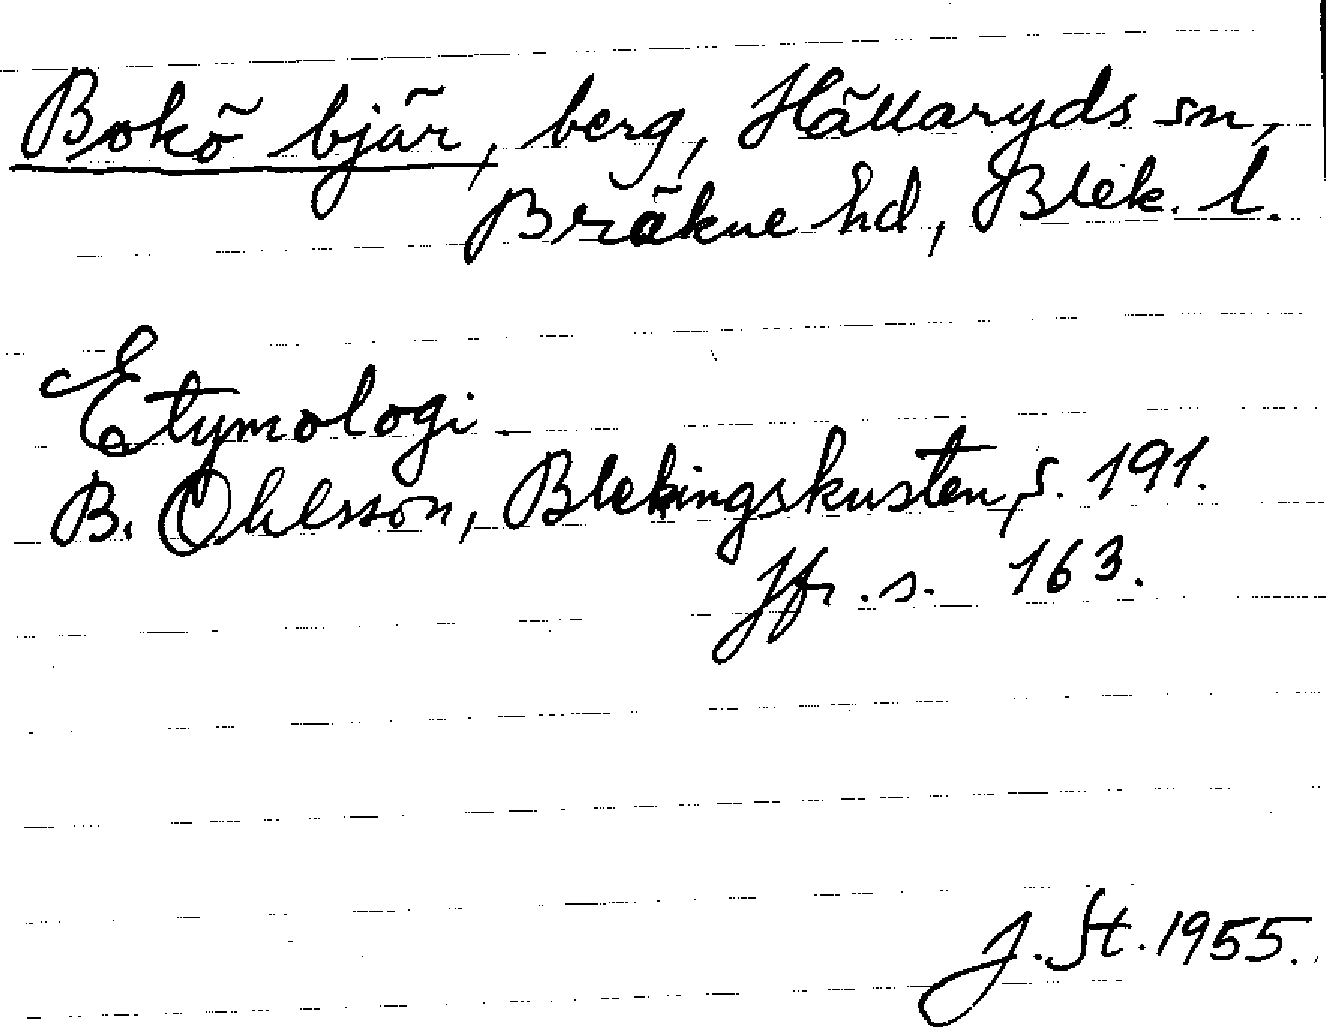 Bokö bjär, berg, Hällaryds sn,
Bräkne hd, Blek. l.
Etymologi
B. Ohlsson, Blekingskusten, s. 191.
Jfr. s. 163.
J. St. 1955.